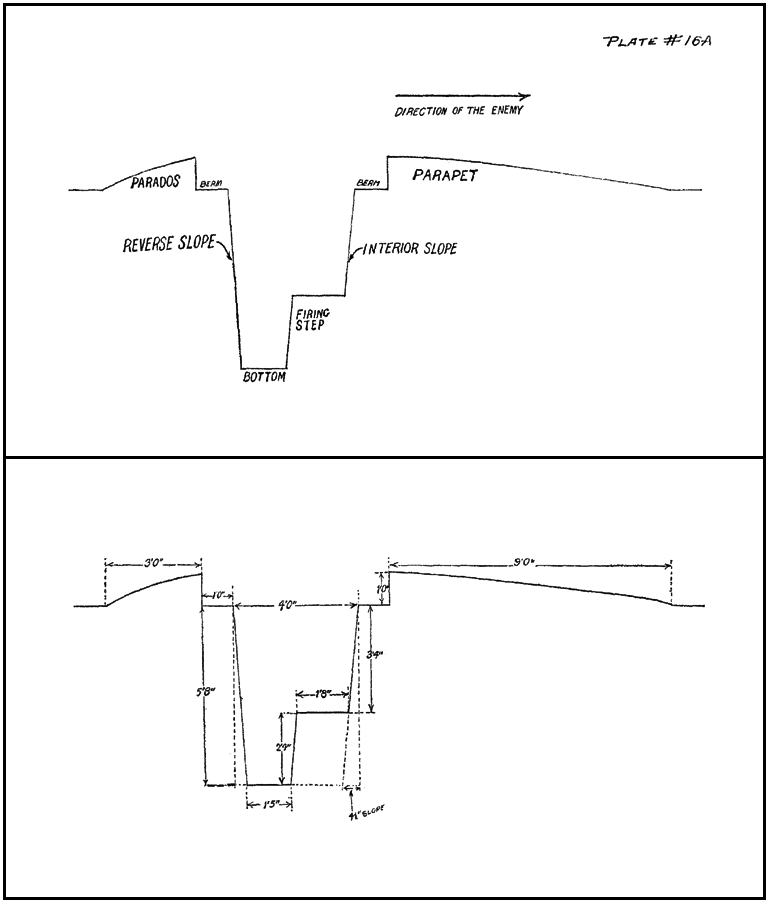 PLATE #16A
DIRECTION OF THE ENEMY
PARADOS
BERM
BERM
PARAPET
REVERSE SLOPE
INTERIOR SLOPE
FIRING
STEP
BOTTOM
3'0"
9'0"
1'0"
4'0"
1'0"
3'4"
5'8"
1'8"
2'4"
1'5"
SLOPE